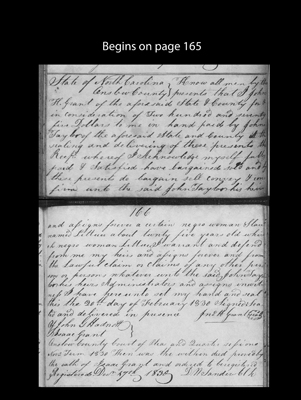 Begins on page 165
State of North Carolina Know all men by the
Onslow County presents that I John
H. Grant of the aforesaid State & County for &
in consideration of Two hundred and seventy
five Dollars to me in hand paid by John
Taylor of the aforesaid State and County at the
sealing and delivering of these presents the
Rect whereof I acknowledge myself fully
paid & Satisfied have bargained sold and
these presents do bargain sell convey & con
firm unto the said John Taylor his heirs
166
and assigns forever a certain negro woman Slave
named about twenty five years old which
negro woman I warrant and defend
from me my heirs and assigns forever and from
the lawful claim or claims of any other per
son or persons whatever unto the said John Taylor
his heirs Administrators and assigns
I have hereunto set my hand and seal
this the 20th day of February 1830 Signed
and delivered in presence Jno H Grant
Isaac Grant
Onslow County Court of Plea and Quarter sessions
1830 then was the within deed proved by
the oath of Isaac Grant and ordered to be
Registered